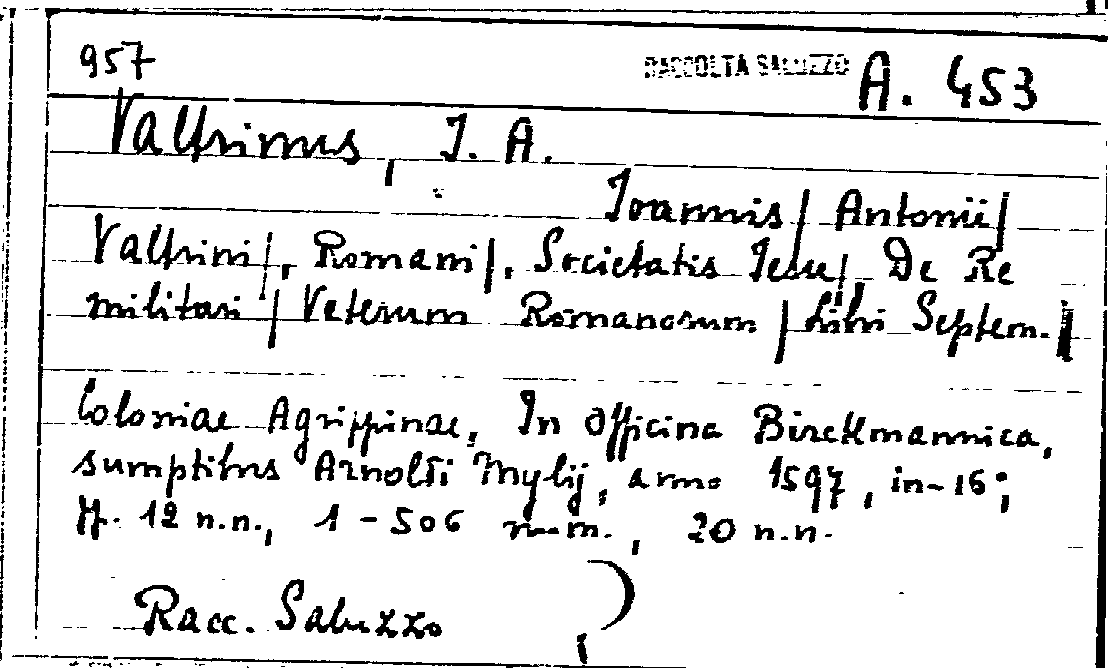 957 RACCOLTA SALUZZO A. 453
Valtrinus, J. A.
Joannis | Antonii |
Valtrini |, Romani |, Societatis Jesu |, De Re
militari | Veterum Romanorum | Libri Septem. |
Coloniae Agrippinae, In Officina Birckmannica,
sumptibus Arnolti Mylij, anno 1597, in-16°;
ff. 12 n.n., 1-506 num., 20 n.n.
Racc. Saluzzo